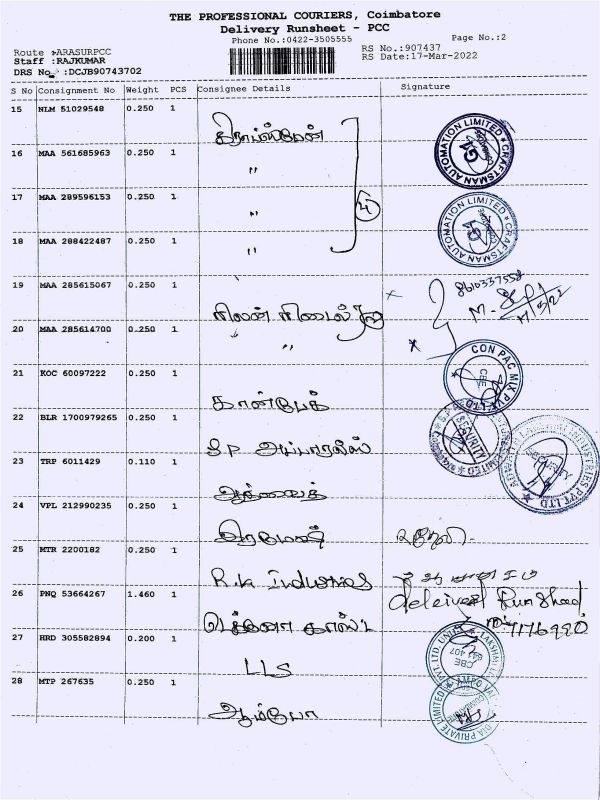 THE PROFESSIONAL COURIERS, Coimbatore
Delivery Runsheet - PCC
Phone No.:0422-3505555
Page No.:2
Route :ARASURPCC
Staff :RAJKUMAR
DRS No. :DCJB90743702
RS No.:907437
RS Date:17-Mar-2022
S No Consignment No Weight PCS Consignee Details Signature
15 NLM 51029548 0.250 1
16 MAA 561685963 0.250 1 "
17 MAA 289596153 0.250 1 "
18 MAA 288422487 0.250 1 "
19 MAA 285615067 0.250 1
8610337558
20 MAA 285614700 0.250 1 "
21 KOC 60097222 0.250 1 கான்பேக்
CON PAC MIX PVT LTD
CBE
22 BLR 1700979265 0.250 1 S.P அப்பாரல்ஸ்
SECURITY
23 TRP 6011429 0.110 1
24 VPL 212990235 0.250 1 இரமேஷ்
25 MTR 2200182 0.250 1 R.K Industries
26 PNQ 53664267 1.460 1 டெக்னோ காஸ்ட்
27 HRD 305582894 0.200 1 LLS
28 MTP 267635 0.250 1 ஆம்போ
CRAFTSMAN AUTOMATION LIMITED
CRAFTSMAN AUTOMATION LIMITED